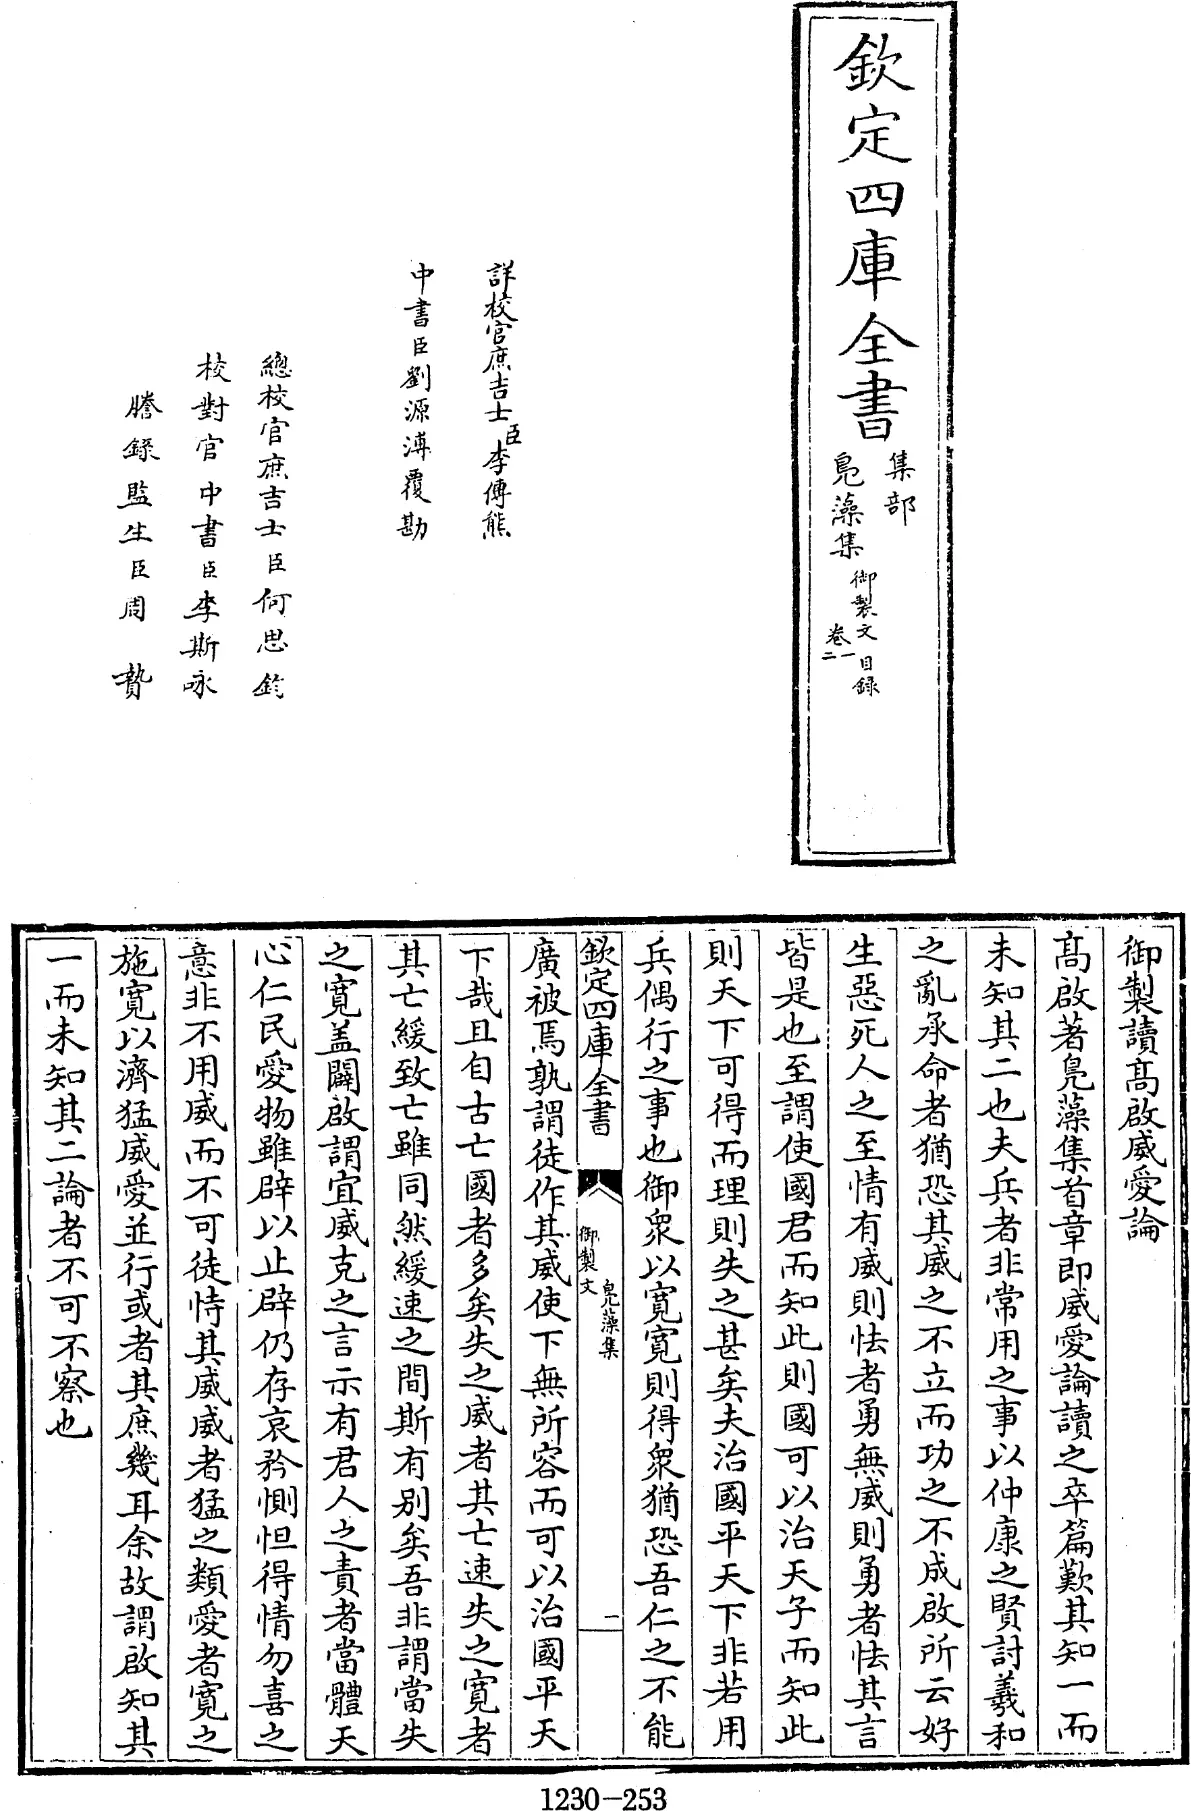 欽定四庫全書
集部
鳧藻集
御製文目錄
卷一
二
詳校官庶吉士臣李傳熊
中書臣劉源溥覆勘
總校官庶吉士臣何思鈞
校對官中書臣李斯咏
謄錄監生臣周贄
御製讀髙啟威愛論
髙啟著鳧藻集首章即威愛論讀之卒篇歎其知一而
未知其二也夫兵者非常用之事以仲康之賢討羲和
之亂承命者猶恐其威之不立而功之不成啟所云好
生惡死人之至情有威則怯者勇無威則勇者怯其言
皆是也至謂使國君而知此則國可以治天子而知此
則天下可得而理則失之甚矣夫治國平天下非若用
兵偶行之事也御衆以寛寛則得衆猶恐吾仁之不能
欽定四庫全書
鳧藻集
御製文
一
廣被焉孰謂徒作其威使下無所容而可以治國平天
下哉且自古亡國者多矣失之威者其亡速失之寛者
其亡緩致亡雖同然緩速之間斯有别矣吾非謂當失
之寛盖闢啟謂宜威克之言示有君人之責者當體天
心仁民愛物雖辟以止辟仍存哀矜惻怛得情勿喜之
意非不用威而不可徒恃其威威者猛之類愛者寛之
施寛以濟猛威愛並行或者其庶幾耳余故謂啟知其
一而未知其二論者不可不察也
1230-253